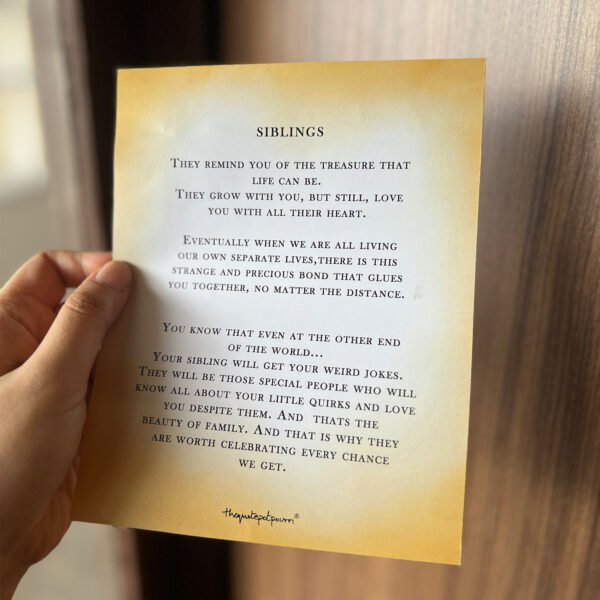 SIBLINGS
THEY REMIND YOU OF THE TREASURE THAT
LIFE CAN BE.
THEY GROW WITH YOU, BUT STILL, LOVE
YOU WITH ALL THEIR HEART.
EVENTUALLY WHEN WE ARE ALL LIVING
OUR OWN SEPARATE LIVES,THERE IS THIS
STRANGE AND PRECIOUS BOND THAT GLUES
YOU TOGETHER, NO MATTER THE DISTANCE.
YOU KNOW THAT EVEN AT THE OTHER END
OF THE WORLD...
YOUR SIBLING WILL GET YOUR WEIRD JOKES.
THEY WILL BE THOSE SPECIAL PEOPLE WHO WILL
KNOW ALL ABOUT YOUR LIITLE QUIRKS AND LOVE
YOU DESPITE THEM. AND THATS THE
BEAUTY OF FAMILY. AND THAT IS WHY THEY
ARE WORTH CELEBRATING EVERY CHANCE
WE GET.
thequotepotpourri®